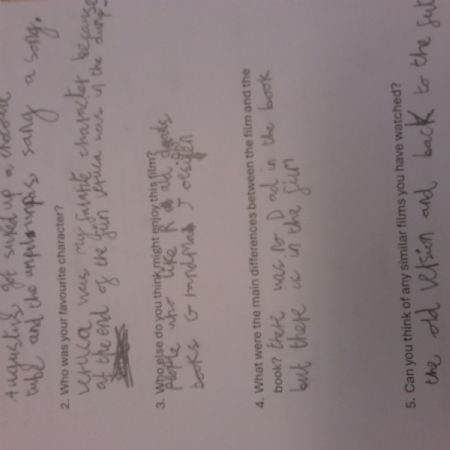 Augustus got sucked up a chocolate
tube and the umplumps, sang a song.
2. Who was your favourite character?
veruca was my favrite character because
at the end of the film veruca was in the dump
3. Who else do you think might enjoy this film?
people who like R old dards
books Grandma J
4. What were the main differences between the film and the
book? there was no Dad in the book
but there is in the film
5. Can you think of any similar films you have watched?
the old version and back to the fut